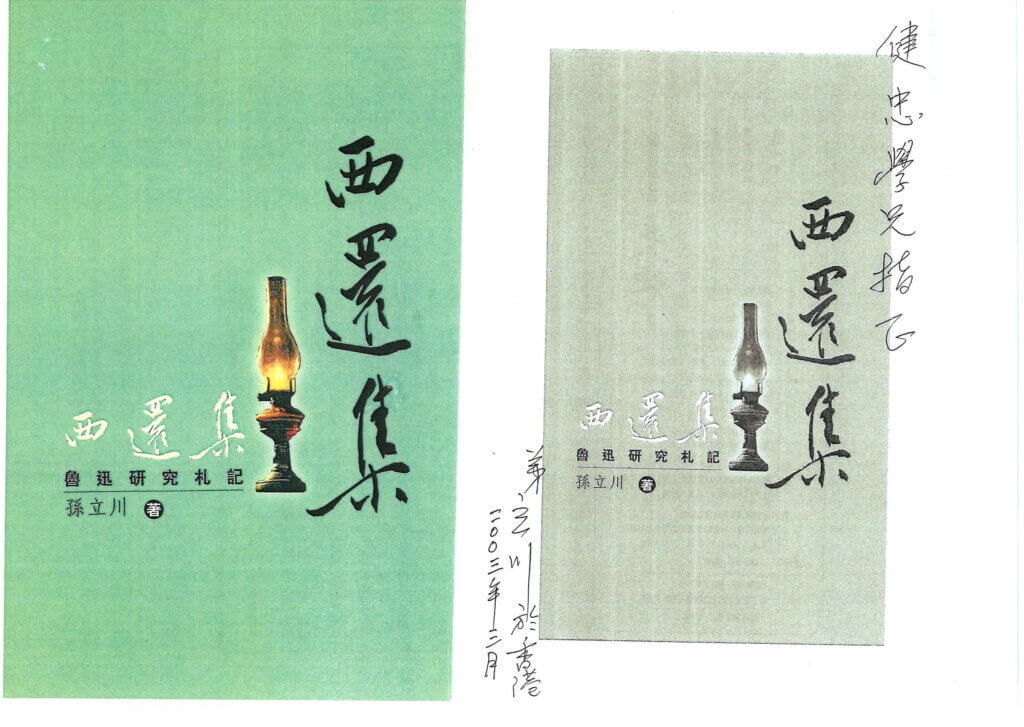 西還集
西還集
魯迅研究札記
孫立川 著
健忠學兄指正
西還集
西還集
魯迅研究札記
孫立川 著
弟立川於香港
二〇〇三年二月